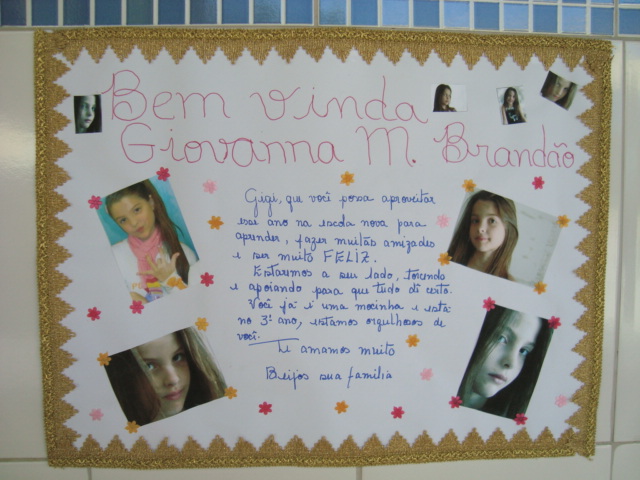 Bem vinda
Giovanna M. Brandão
Gigi, que você possa aproveitar
esse ano na escola nova para
aprender, fazer muitas amizades
e ser muito FELIZ.
Estarmos a seu lado, torcendo
e apoiando para que tudo dê certo.
Você já é uma mocinha e está
no 3º ano, estamos orgulhosos de
você.
Te amamos muito
Beijos sua família